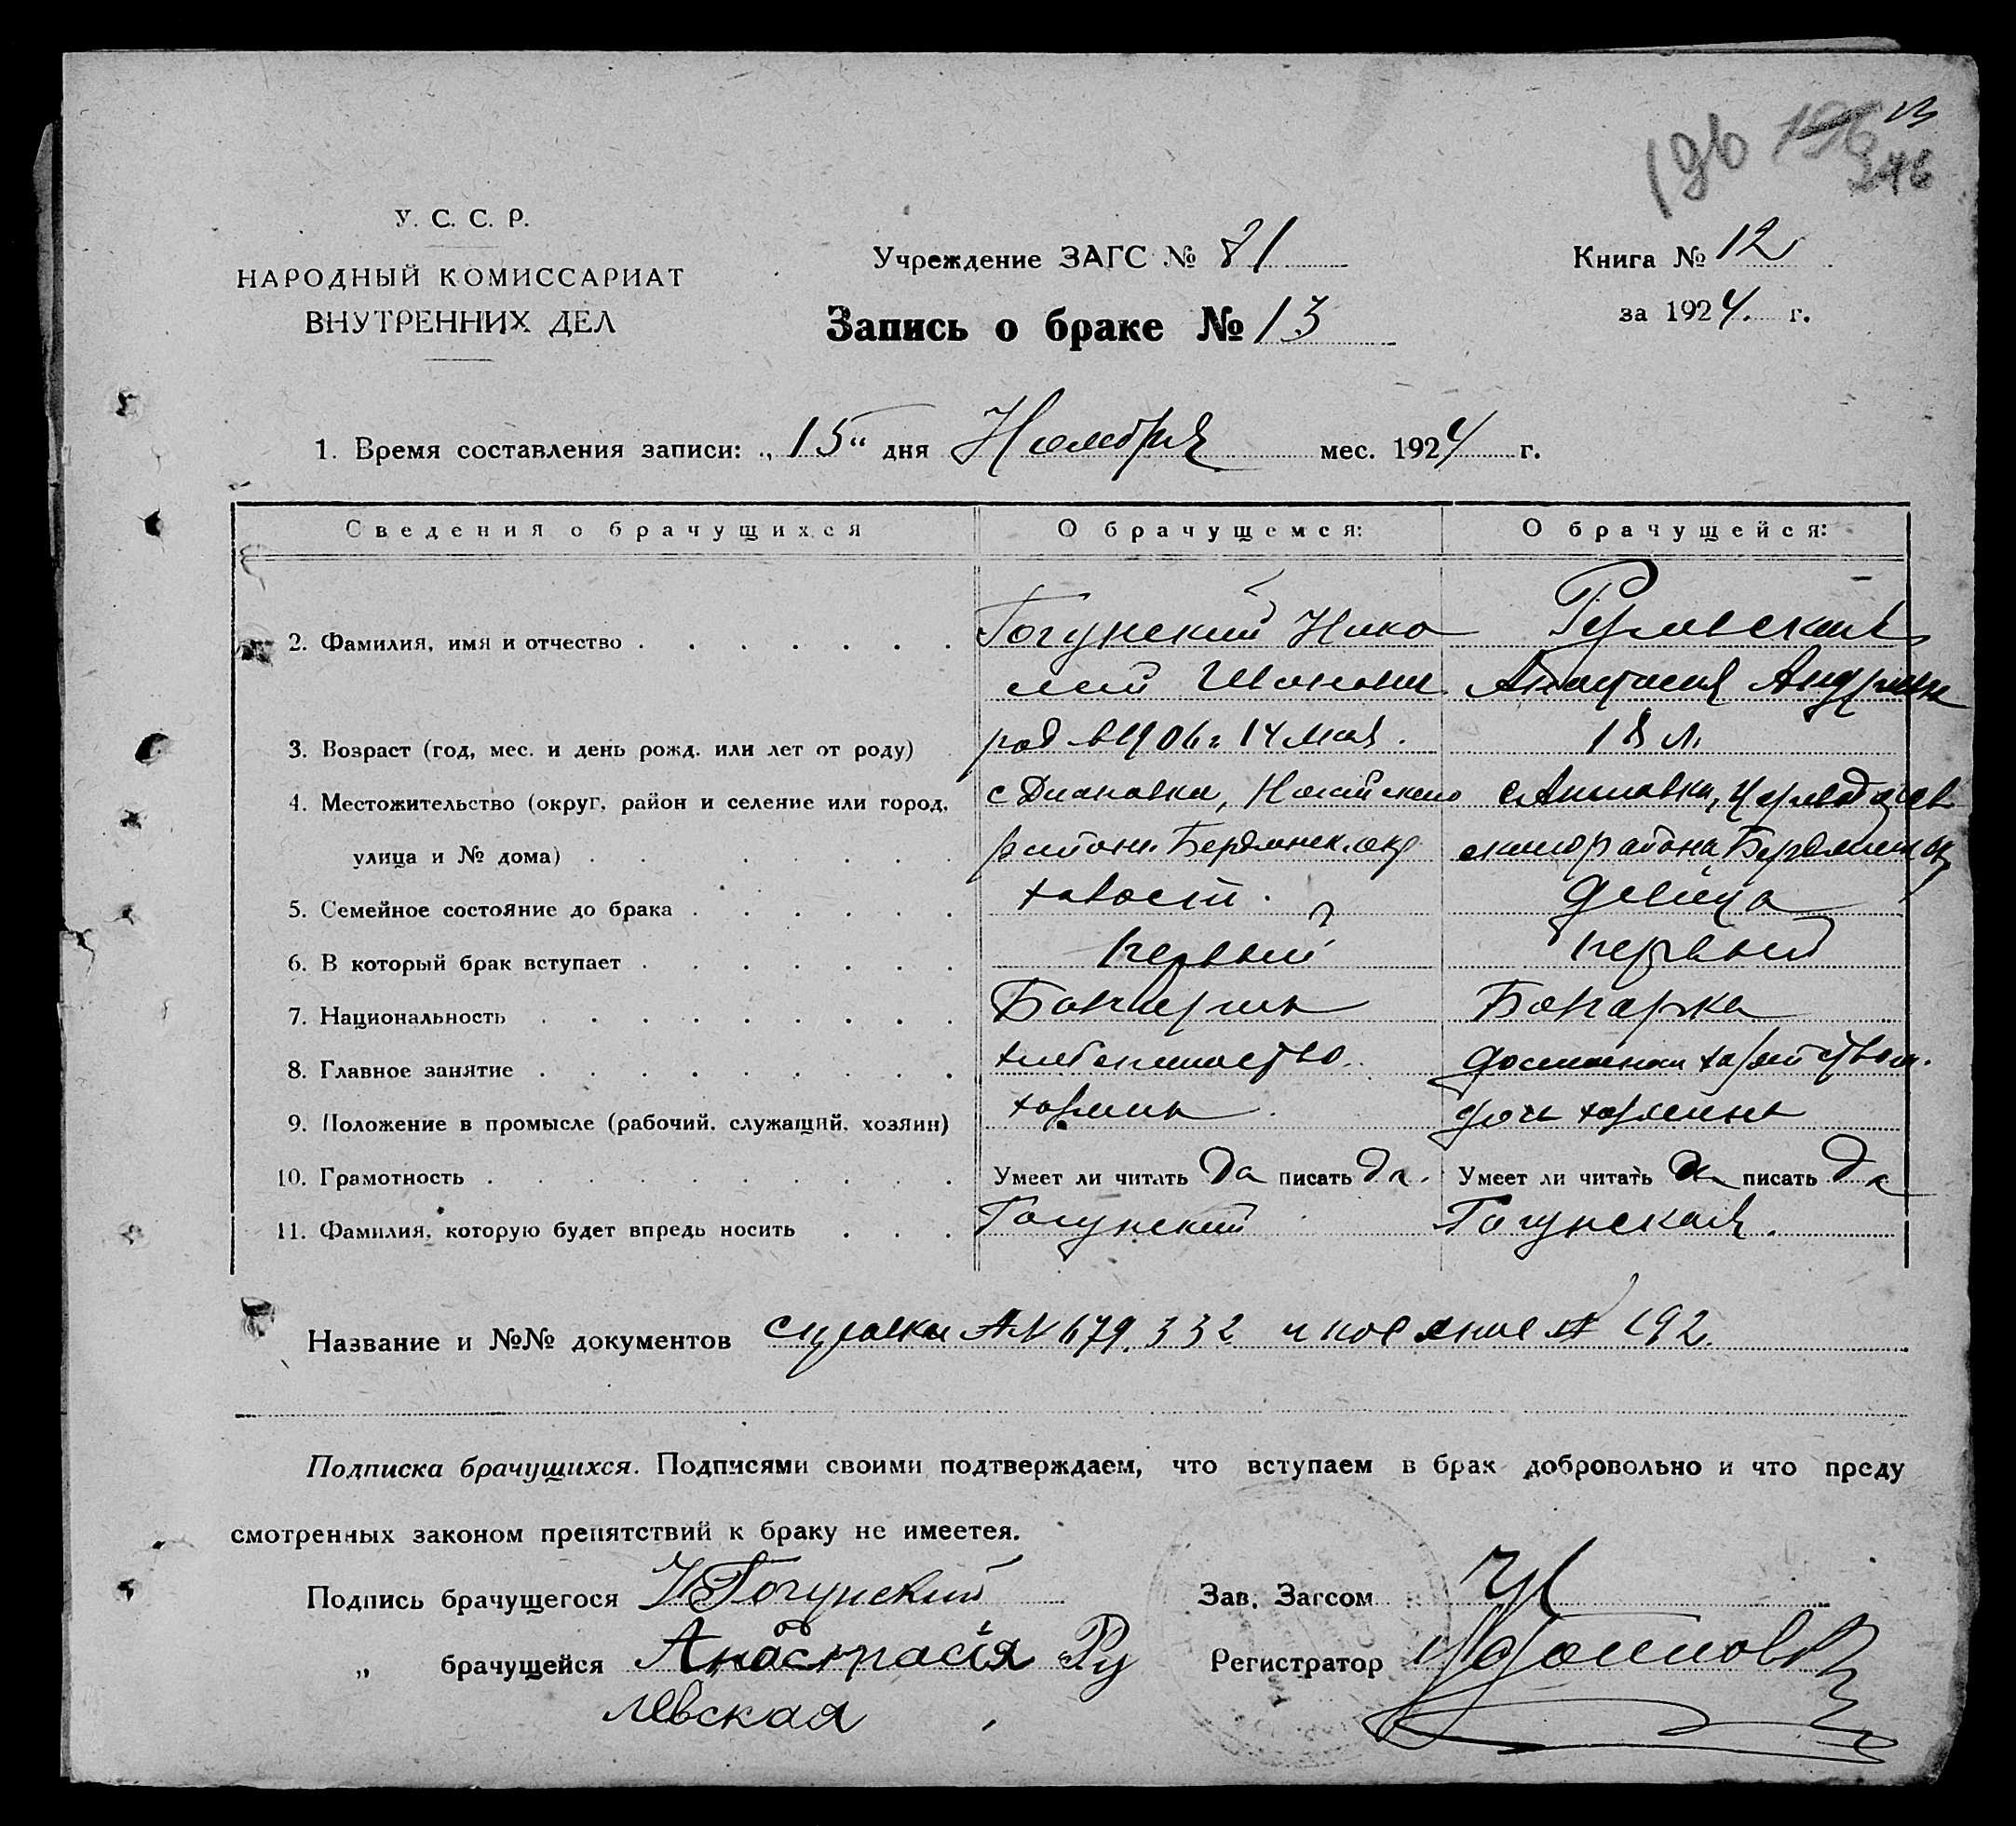 196 196 13
246
У. С. С. Р.
НАРОДНЫЙ КОМИССАРИАТ
ВНУТРЕННИХ ДЕЛ
Учреждение ЗАГС № 81
Книга № 12
Запись о браке № 13
за 1924. г.
1. Время составления записи: „15“ дня Ноября мес. 1924 г.
Сведения о брачущихся О брачущемся: О брачущейся:
2. Фамилия, имя и отчество Гогунский Нико Рулевская
лай Иванович Анастасия Андреевн
3. Возраст (год, мес. и день рожд. или лет от роду) род в 1906 г 14 мая. 18 л.
4. Местожительство (округ, район и селение или город, с Диановка, Ногайского
улица и № дома) района Бердянск. окр ского района Бердянск ок
5. Семейное состояние до брака холост. девица
6. В который брак вступает первый первый
7. Национальность Болгарин Болгарка
8. Главное занятие хлебопашество. домашним хозяйством.
9. Положение в промысле (рабочий, служащий, хозяин) хозяин дочь хозяина
10. Грамотность Умеет ли читать Да писать Да. Умеет ли читать Да писать Да
11. Фамилия, которую будет впредь носить Гогунский Гогунская.
Название и №№ документов справки № 679. 332 192.
Подписка брачущихся. Подписями своими подтверждаем, что вступаем в брак добровольно и что преду
смотренных законом препятствий к браку не имеетея.
Подпись брачущегося Н Гогунский Зав. Загсом
„ брачущейся Анастасія Ру Регистратор
левская